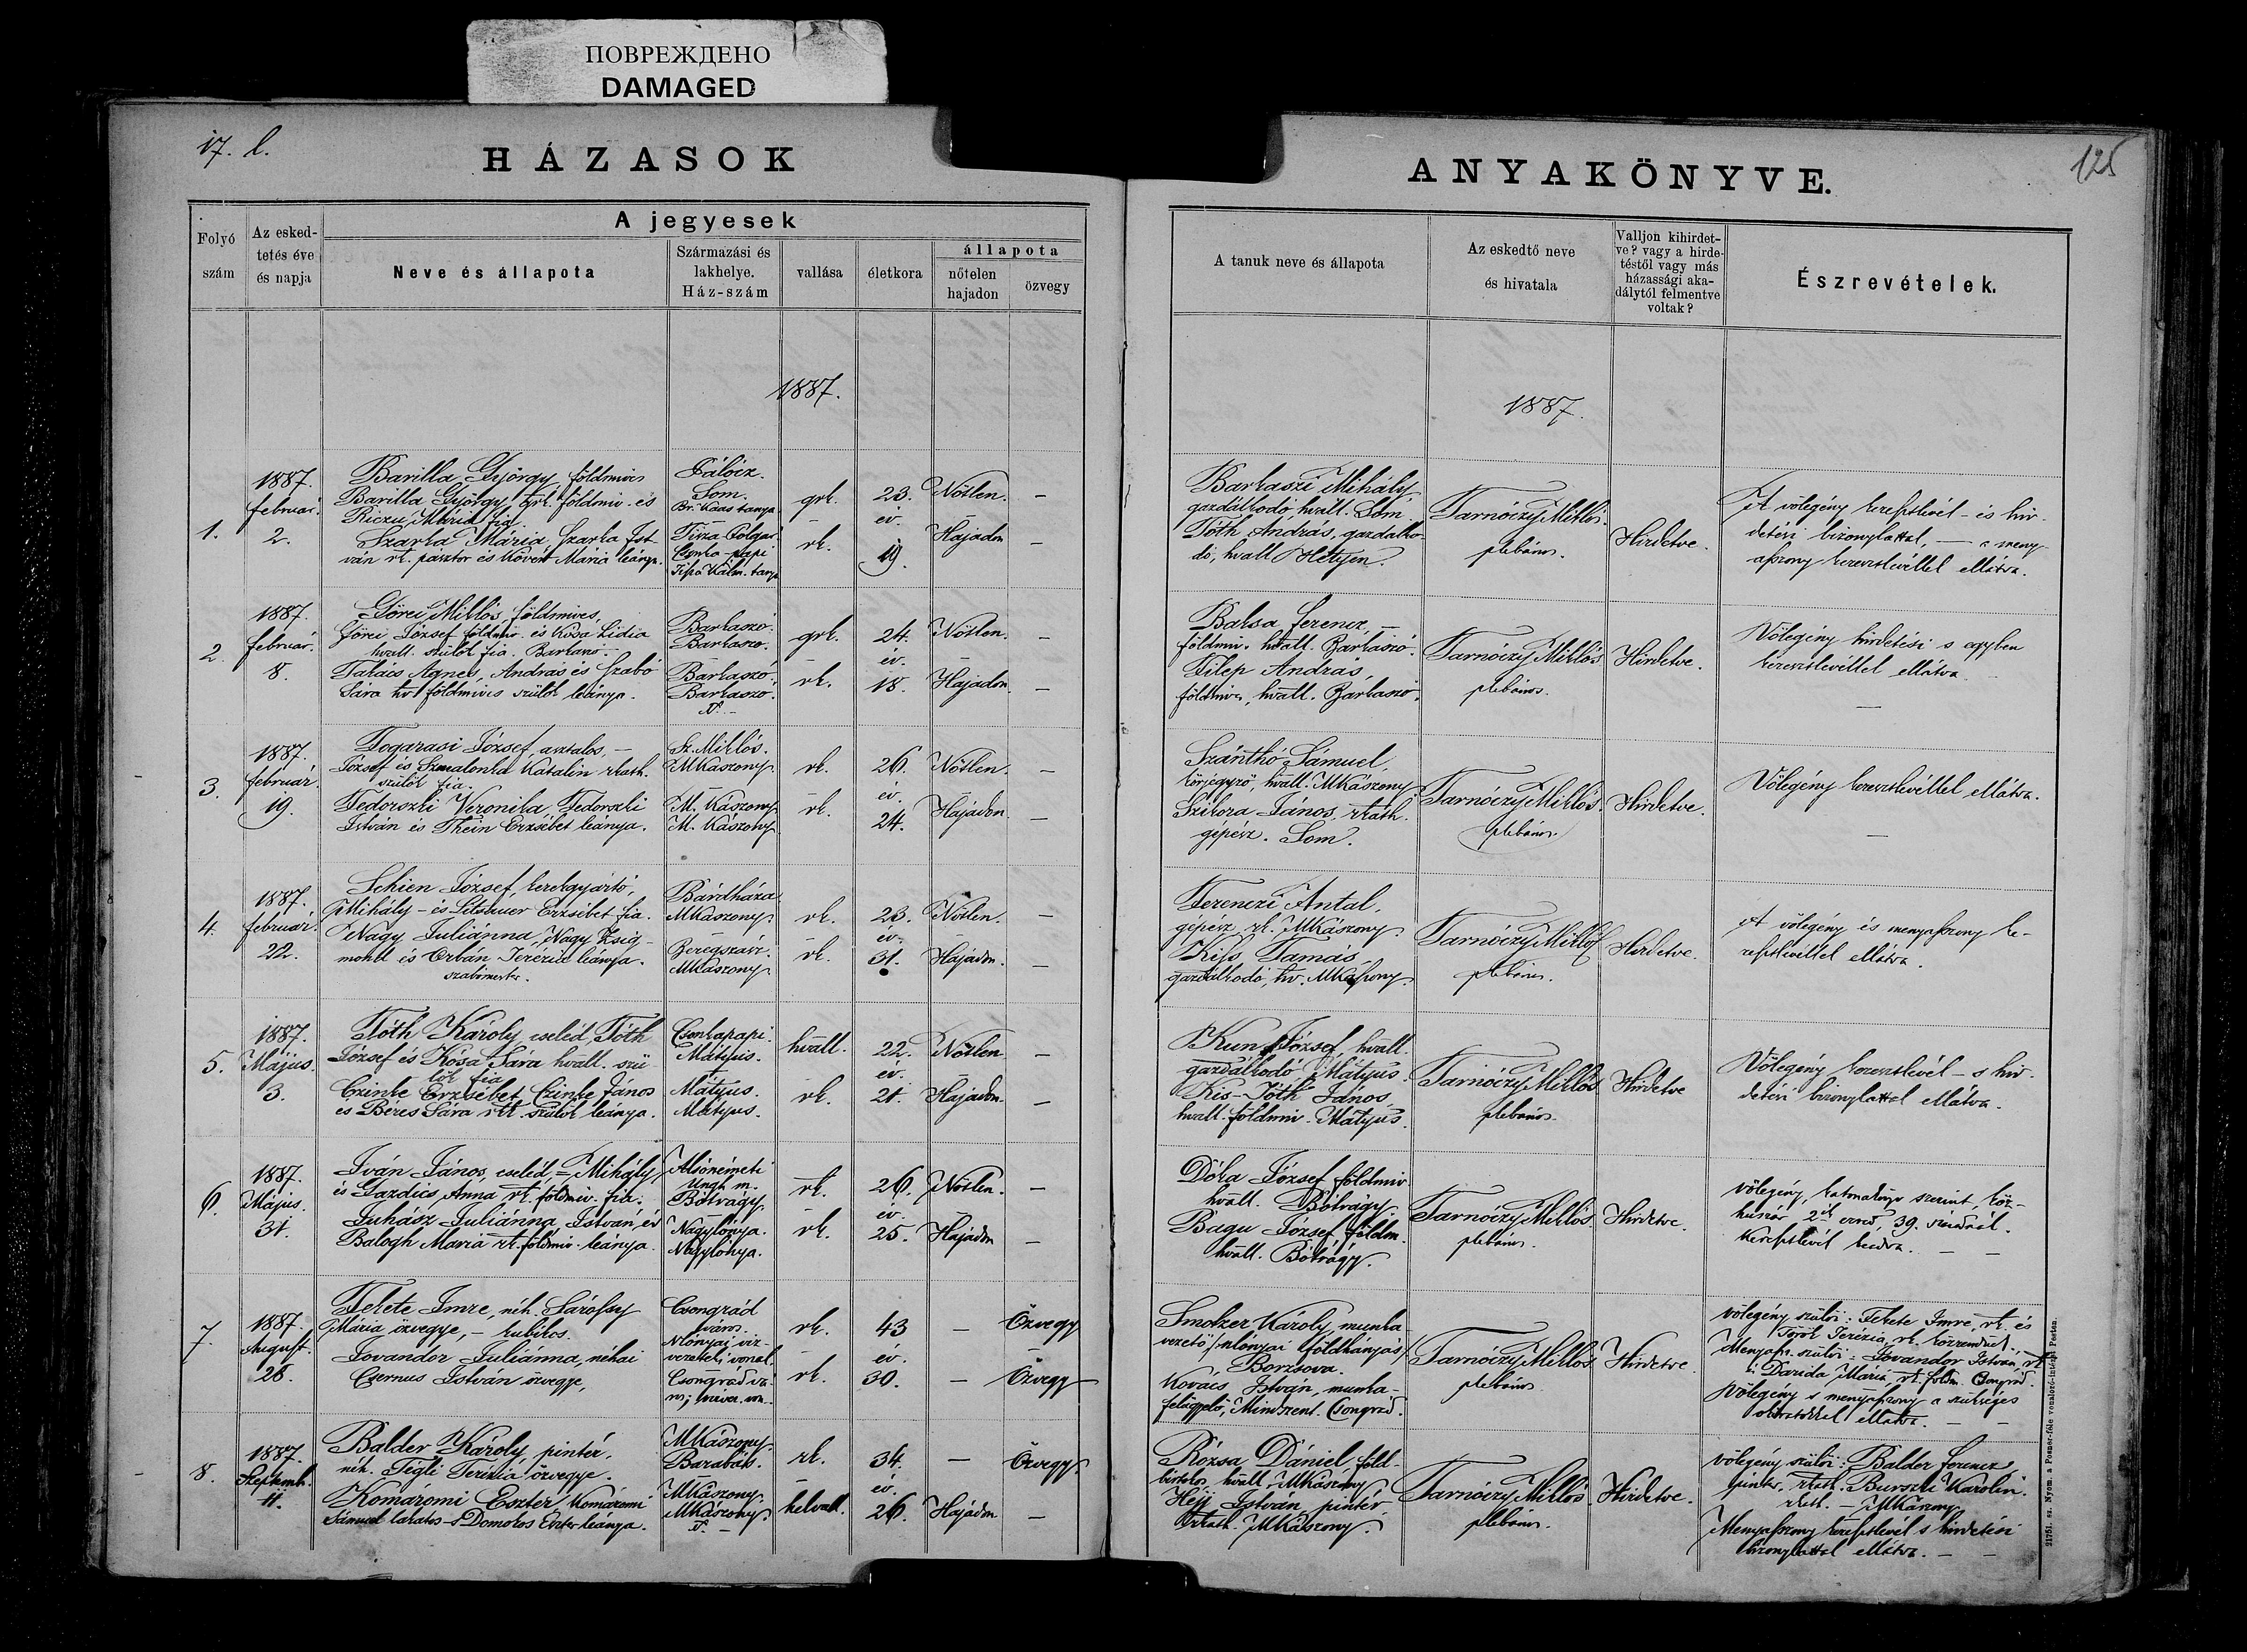 ПОВРЕЖДЕНО
DAMAGED
17. l.
HÁZASOK
ANYAKÖNYVE.
125
Folyó
szám
Az esked-
tetés éve
és napja
A jegyesek
Neve és állapota
Származási és
lakhelye.
Ház-szám
vallása
életkora
állapota
nőtelen
hajadon
özvegy
A tanuk neve és állapota
Az eskedtő neve
és hivatala
Valljon kihirdet-
ve? vagy a hirde-
téstől vagy más
házassági aka-
dálytól felmentve
voltak?
Észrevételek.
1887.
1887.
1.
1887.
február.
2.
Barilla György, földmives
Barilla György grk. földmiv. és
Riczu Mária fia.
Szarka Mária, Szarka Ist-
ván rk. pásztor és Kövér Mária leánya.
Pálócz.
Som.
Br. Kaas tanya
Tisza Polgár
Csonka-papi
Tisza Kálm. tanya
grk.
rk.
23.
év.
19.
Nőtlen.
Hajadon
Barkaszi Mihály,
gazdálkodó hvall. Som.
Tóth András, gazdálko-
dó, hvall Hetyen.
Tarnóczy Miklós.
plébános.
Hirdetve.
A völegény keresztlevél - és hir-
detési bizonylattal, — a meny-
asszony keresztlevéllel ellátva.
2.
1887.
február.
8.
Görei Miklós, földmives,
Görei József földmiv. és Kósa Lidia
hvall. szülők fia. Barkaszó.
Takács Ágnes, András és Szabó
Sára hv földmives szülők leánya.
Barkaszó.
Barkaszó.
Barkaszó.
Barkaszó.
grk.
rk.
24.
év.
18.
Nőtlen.
Hajadon.
Balsa Ferencz, —
földmiv. hvall. Barkaszó.
Filep András,
földmives, hvall. Barkaszó.
Tarnóczy Miklós
plébános.
Hirdetve.
Völegény hirdetési s egyben
keresztlevéllel ellátva.
3.
1887.
február.
19.
Fogarasi József, asztalos, —
József és Szmalonka Katalin rkath.
szülők fia.
Fedorszki Veronika, Fedorszki
István és Thein Erzsébet leánya.
Sz. Miklós.
MKászony.
M. Kászony
M. Kászony
rk.
rk.
26.
év.
24.
Nőtlen.
Hajadon.
Szánthó Sámuel,
körjegyző, hvall. MKászony
Szikora János, rkath.
gépész. Som.
Tarnóczy Miklós.
plébános.
Hirdetve.
Völegény keresztlevéllel ellátva.
4.
1887.
február.
22.
Schien József, kerékgyártó,
Mihály - és Erzsébet fia.
Nagy Juliánna, Nagy Zsig-
mond és Orbán Terézia leánya.
szabómester.
Bárdháza
MKászony.
Beregszász.
MKászony
rk.
rk.
23.
év.
31.
Nőtlen.
Hajadon.
Ferenczi Antal,
gépész, rk. MKászony
Kiss Tamás,
gazdálkodó, hv. MKászony.
Tarnóczy Miklós
plébános.
Hirdetve.
A völegény és menyasszony ke-
resztlevéllel ellátva.
5.
1887.
Május.
3.
Tóth Károly, cseléd, Tóth
József és Kósa Sára hvall. szü-
lők fia
Czinke Erzsébet, Czinke János
és Béres Sára rk. szülők leánya.
Csonkapapi.
Mátyus.
Mátyus.
Mátyus.
hvall.
rk.
22.
év.
21.
Nőtlen
Hajadon.
Kun József, hvall.
gazdálkodó Mátyus.
Kis-Tóth János,
hvall. földmiv. Mátyus.
Tarnóczy Miklós
plébános.
Hirdetve
Völegény keresztlevél - s hir-
detési bizonylattal ellátva.
6.
1887.
Május.
31.
Iván János, cseléd, - Mihály
és Gazdics Anna rk. földmiv. fia.
Juhász Juliánna, István és
Balogh Mária rk. földmiv. leánya.
Alsónémeti
Ungh m.
Bótrágy.
Nagylónya.
Nagylónya.
rk.
rk.
26.
év.
25.
Nőtlen.
Hajadon
Dóka József földmiv
hvall. Bótrágy.
Bagu József földm.
hvall. Bótrágy.
Tarnóczy Miklós
plébános.
Hirdetve.
völegény, szerint, köz-
huszár 2ik ezred, 39. század.
Keresztlevél
7.
1887.
August.
28.
Fekete Imre, néh. Sárossy
Mária özvegye, - kubikos.
Jovandor Juliánna, néhai
Csernus István özvegye,
Csongrád
város.
vezetéki vonal.
rk.
rk.
43
év.
30.
Özvegy
Özvegy
Smolzer Károly, munka
vezető
Borzsova.
Kovács István, munka-
felügyelő, Mindszent. Csongrád.
Tarnóczy Miklós
plébános.
Hirdetve.
völegény szülői: Fekete Imre, rk. és
Terézia, rk.
Menyass. szülői: Jovandor István, rk.
s Darida Mária, rk. földm. Csongrád.
Völegény s menyasszony a szükséges
okiratokkal ellátva.
8.
1887.
Septemb.
11.
Balder Károly, pintér,
néh. Tégli Terézia özvegye.
Komáromi Eszter, Komáromi
Sámuel lakatos - s Domokos Eszter leánya.
MKászony.
Barabás.
MKászony.
MKászony.
rk.
helvall.
34.
év.
26.
Hajadon
Özvegy.
Rózsa Dániel, föld-
birtokos, hvall. MKászony.
Héji István, pintér
rkath. MKászony.
Tarnóczy Miklós.
plébános.
Hirdetve.
völegény szülői: Balder Ferencz
pintér, rkath. Burszki Karolin.
rkath. - MKászony.
Menyasszony keresztlevél s hirdetési
bizonylattal ellátva.
21751. sz. Nyom. a Posner-féle vonalozó-intézet Pesten.